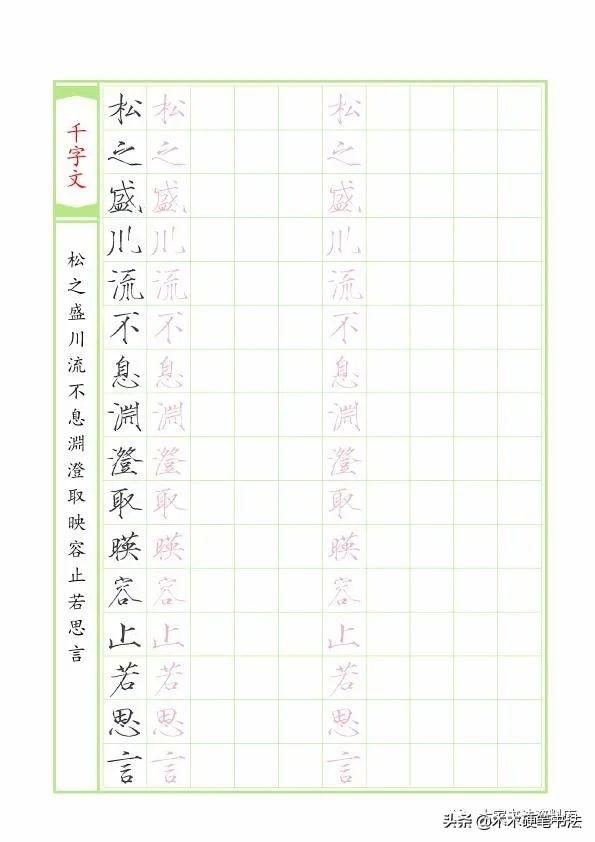 千字文
松之盛川流不息淵澄取映容止若思言
松之盛川流不息淵澄取暎容止若思言
松之盛川流不息淵澄取暎容止若思言
松之盛川流不息淵澄取暎容止若思言
头条 @硬笔书法